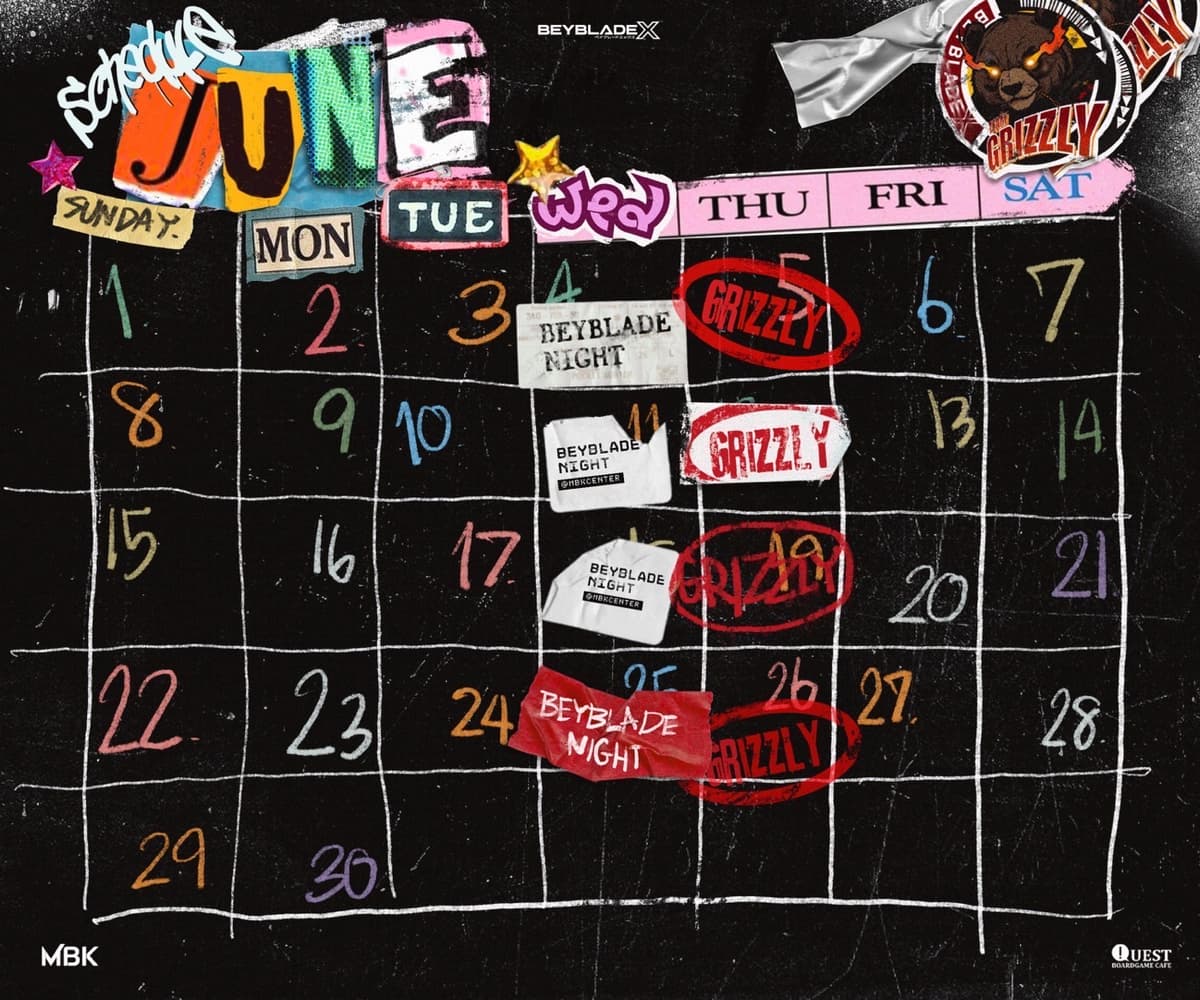 Schedule
JUNE
BEYBLADE X
BEYBLADE X
GRIZZLY
SUNDAY.
MON
TUE
Wed
THU
FRI
SAT
1
2
3
4
BEYBLADE
NIGHT
5
GRIZZLY
6
7
8
9
10
11
BEYBLADE
NIGHT
@MBKCENTER
GRIZZLY
13
14
15
16
17
BEYBLADE
NIGHT
@MBKCENTER
19
GRIZZLY
20
21
22
23
24
25
BEYBLADE
NIGHT
26
GRIZZLY
27
28
29
30
MBK
QUEST
BOARDGAME CAFE